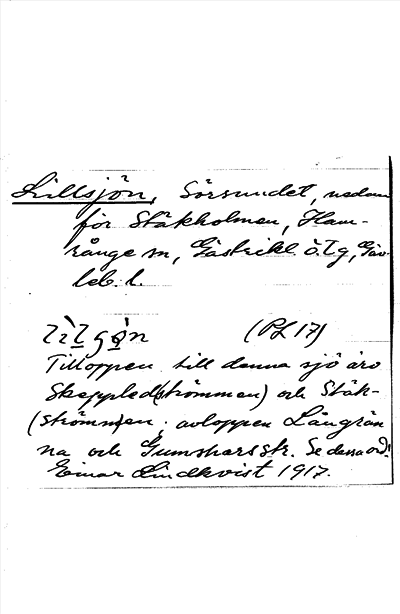 Lillsjön, Sörsundet, nedan
för Stäkholmen, Ham-
rånge sn, Gästrikl. ö. Tg, Gäv-
leb. l.
(PL 17)
Tilloppen till denna sjö äro
Skeppleds(strömmen) och Stäk-
(strömm)en; avloppen Långrän
na och Gumsharsstr. Se dessa ord!
Einar Lindkvist 1917.